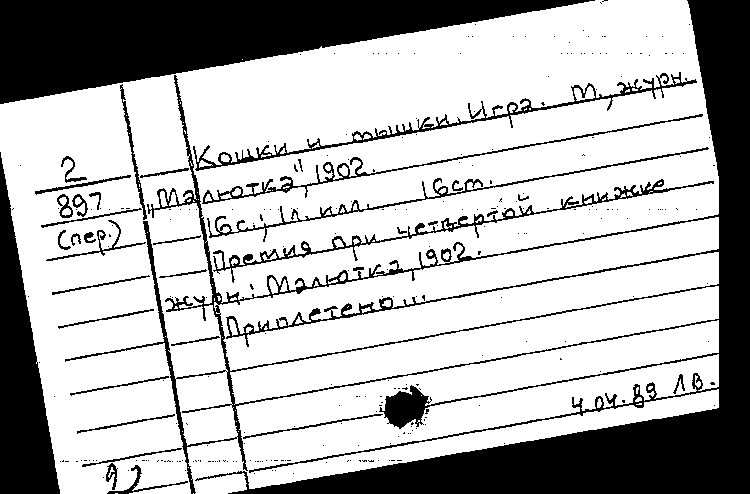 2
897
(пер.)
Кошки и мышки. Игра. М., журн.
„Малютка", 1902.
16с.; 1л. илл. 16см.
Премия при четвертой книжке
журн: Малютка, 1902.
Приплетено...
4.04.89 ЛВ.